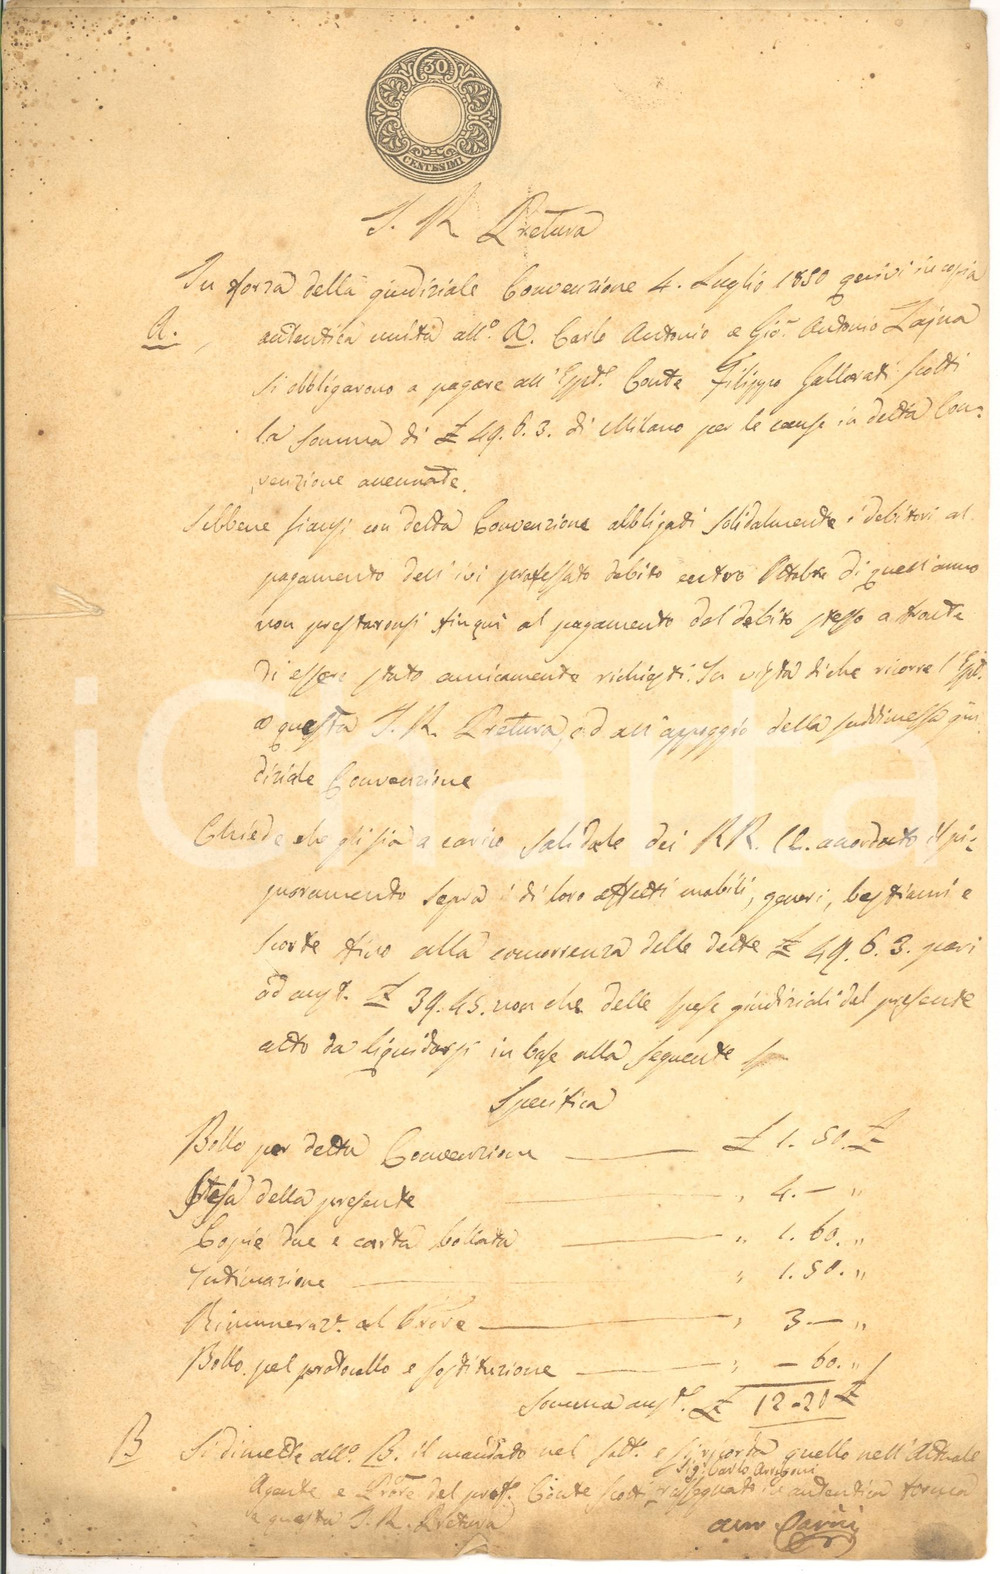 30
CENTESIMI
I. R. Pretura
In forza della giudiziale Convenzione 4. Luglio 1850 quivi in copia
A. autentica unita all.º A. Carlo Antonio e Gio. Antonio Zajna
si obbligarono a pagare all' Esp.te Conte Filippo Gallarati Scotti
la somma di £ 49. 6. 3. di Milano per le cause in detta Con=
venzione accennate.
Sebbene siansi con detta Convenzione obbligati solidalmente i debitori al
pagamento dell'ivi professato debito entro Ottobre di quell'anno
non prestaronsi finqui al pagamento del debito stesso a fronte
di essere stato amicamente richiesti. In vista di che ricorre l'Esp.
a questa I. R. Pretura, ed all'appoggio della suddimessa giu
diziale Convenzione
Chiede che gli sia a carico solidale dei RR. CC. accordato il pi=
gnoramento sopra i di loro effetti mobili, generi, bestiami e
scorte fino alla concorrenza delle dette £ 49. 6. 3. pari
ad aust. £ 39. 45. non che delle spese giudiziali del presente
atto da liquidarsi in base alla seguente
Specifica
Bollo per detta Convenzione £ 1. 50. £
Stesa della presente " 4. — "
Copie due e carta bollata " 1. 60. "
Intimazione " 1. 50. "
Rimuneraz.e al Proc.e " 3 — "
Bollo pel protocollo e sostituzione " — 60. "
Somma aust. £ 12 - 20 £
B Si dimette all.º B. il mandato nel e si riporta quello nell'Attuale
Sig. Carlo Arrigoni
Agente e Proc.re del Conte Scotti rassegnato in autentica forma
a questa I. R. Pretura
iCharta